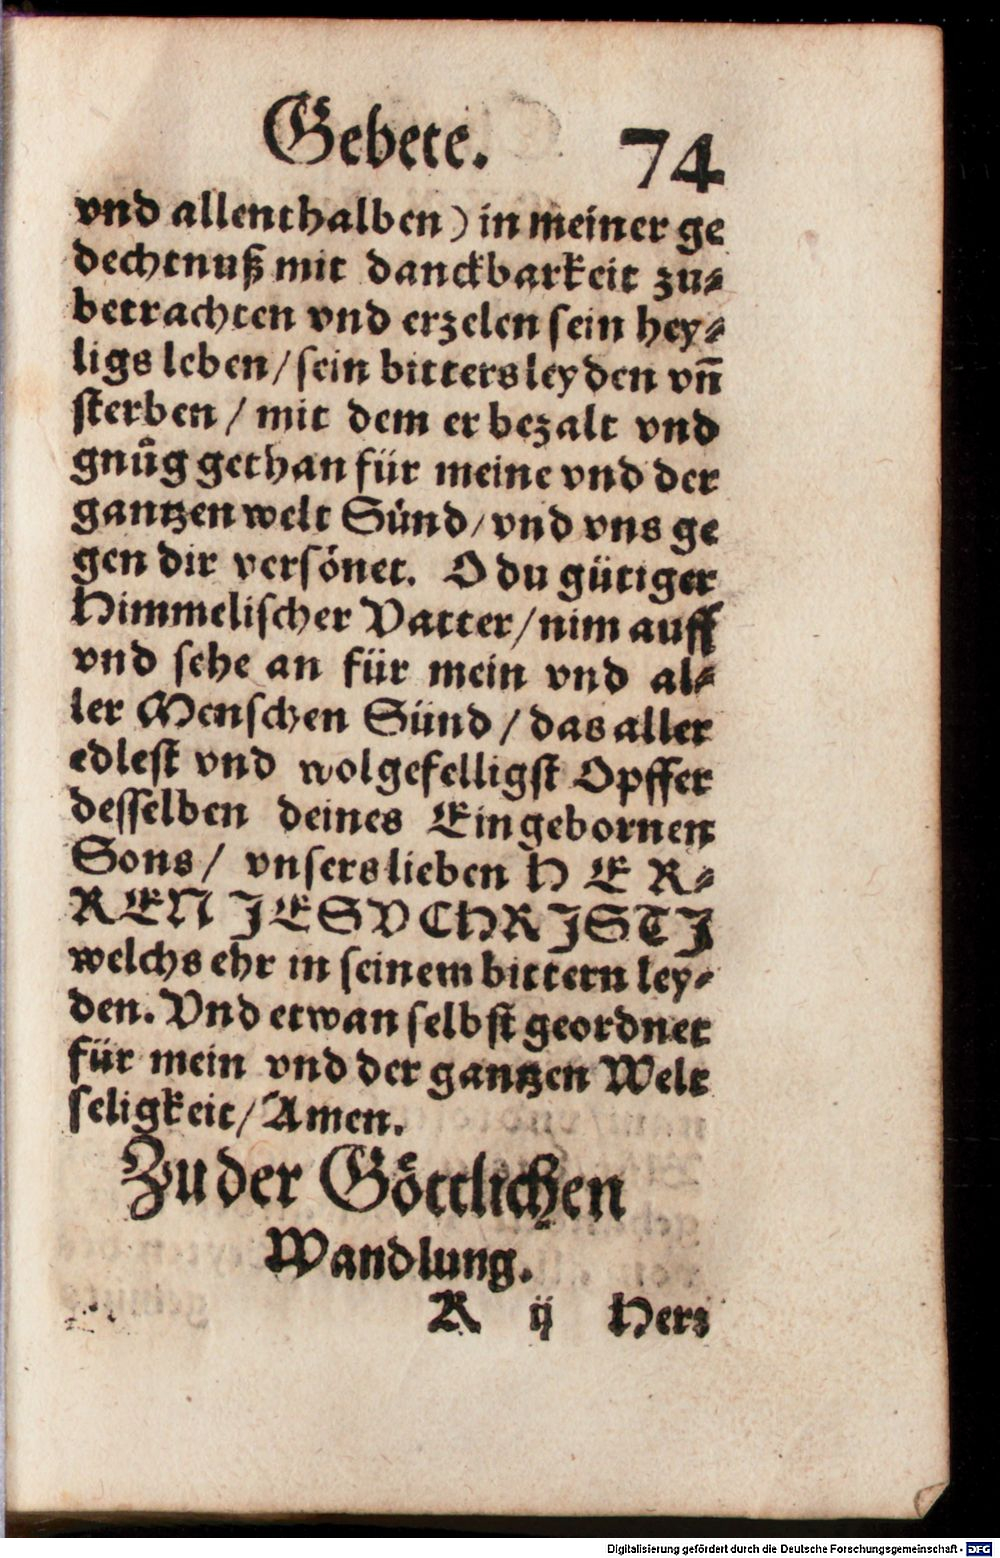 Gebete. 74
vnd allenthalben) in meiner ge
dechtnuß mit danckbarkeit zu⸗
betrachten vnd erzelen sein hey⸗
ligs leben/ sein bitters leyden vñ
sterben / mit dem er bezalt vnd
gnůg gethan für meine vnd der
gantzen welt Sünd/ vnd vns ge
gen dir versönet. O du gütiger
Himmelischer Vatter/ nim auff
vnd sehe an für mein vnd al⸗
ler Menschen Sünd / das aller
edlest vnd wolgefelligst Opffer
desselben deines Eingebornen
Sons/ vnsers lieben H E R⸗
REN JESV CHRJSTJ
welchs ehr in seinem bittern ley⸗
den. Vnd etwan selbst geordnet
für mein vnd der gantzen Welt
seligkeit/ Amen.
Zu der Göttlichen
Wandlung.
K ij Herz
Digitalisierung gefördert durch die Deutsche Forschungsgemeinschaft - DFG